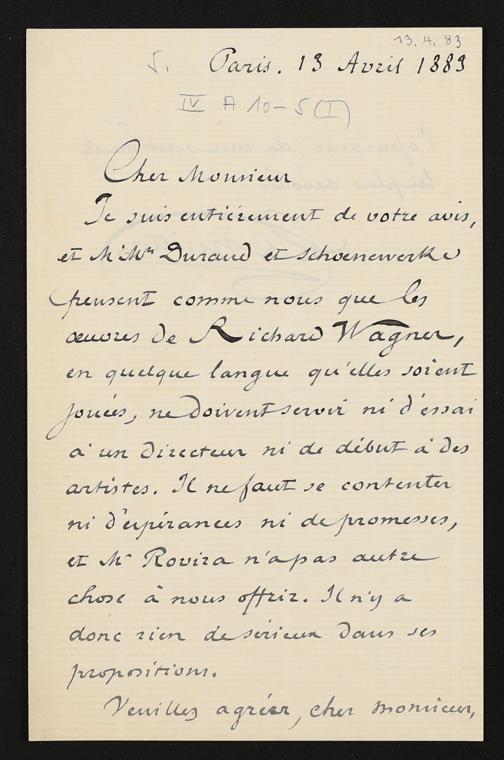 13.4.83
5. Paris. 13 Avril 1883
IV A 10-5 (I)
Cher Monsieur
Je suis entièrement de votre avis,
et M.Mrs Durand et Schoenewerke
pensent comme nous que les
œuvres de Richard Wagner,
en quelque langue qu'elles soient
jouées, ne doivent servir ni d'essai
à un directeur ni de début à des
artistes. Il ne faut se contenter
ni d'espérances ni de promesses,
et Mr Rovira n'a pas autre
chose à nous offrir. Il n'y a
donc rien de sérieux dans ses
propositions.
Veuillez agréer, cher monsieur,